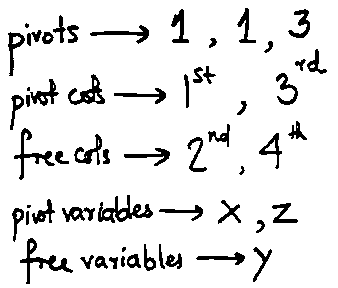 pivots → 1, 1, 3
pivot cols → 1st, 3rd
free cols → 2nd, 4th
pivot variables → x, z
free variables → y